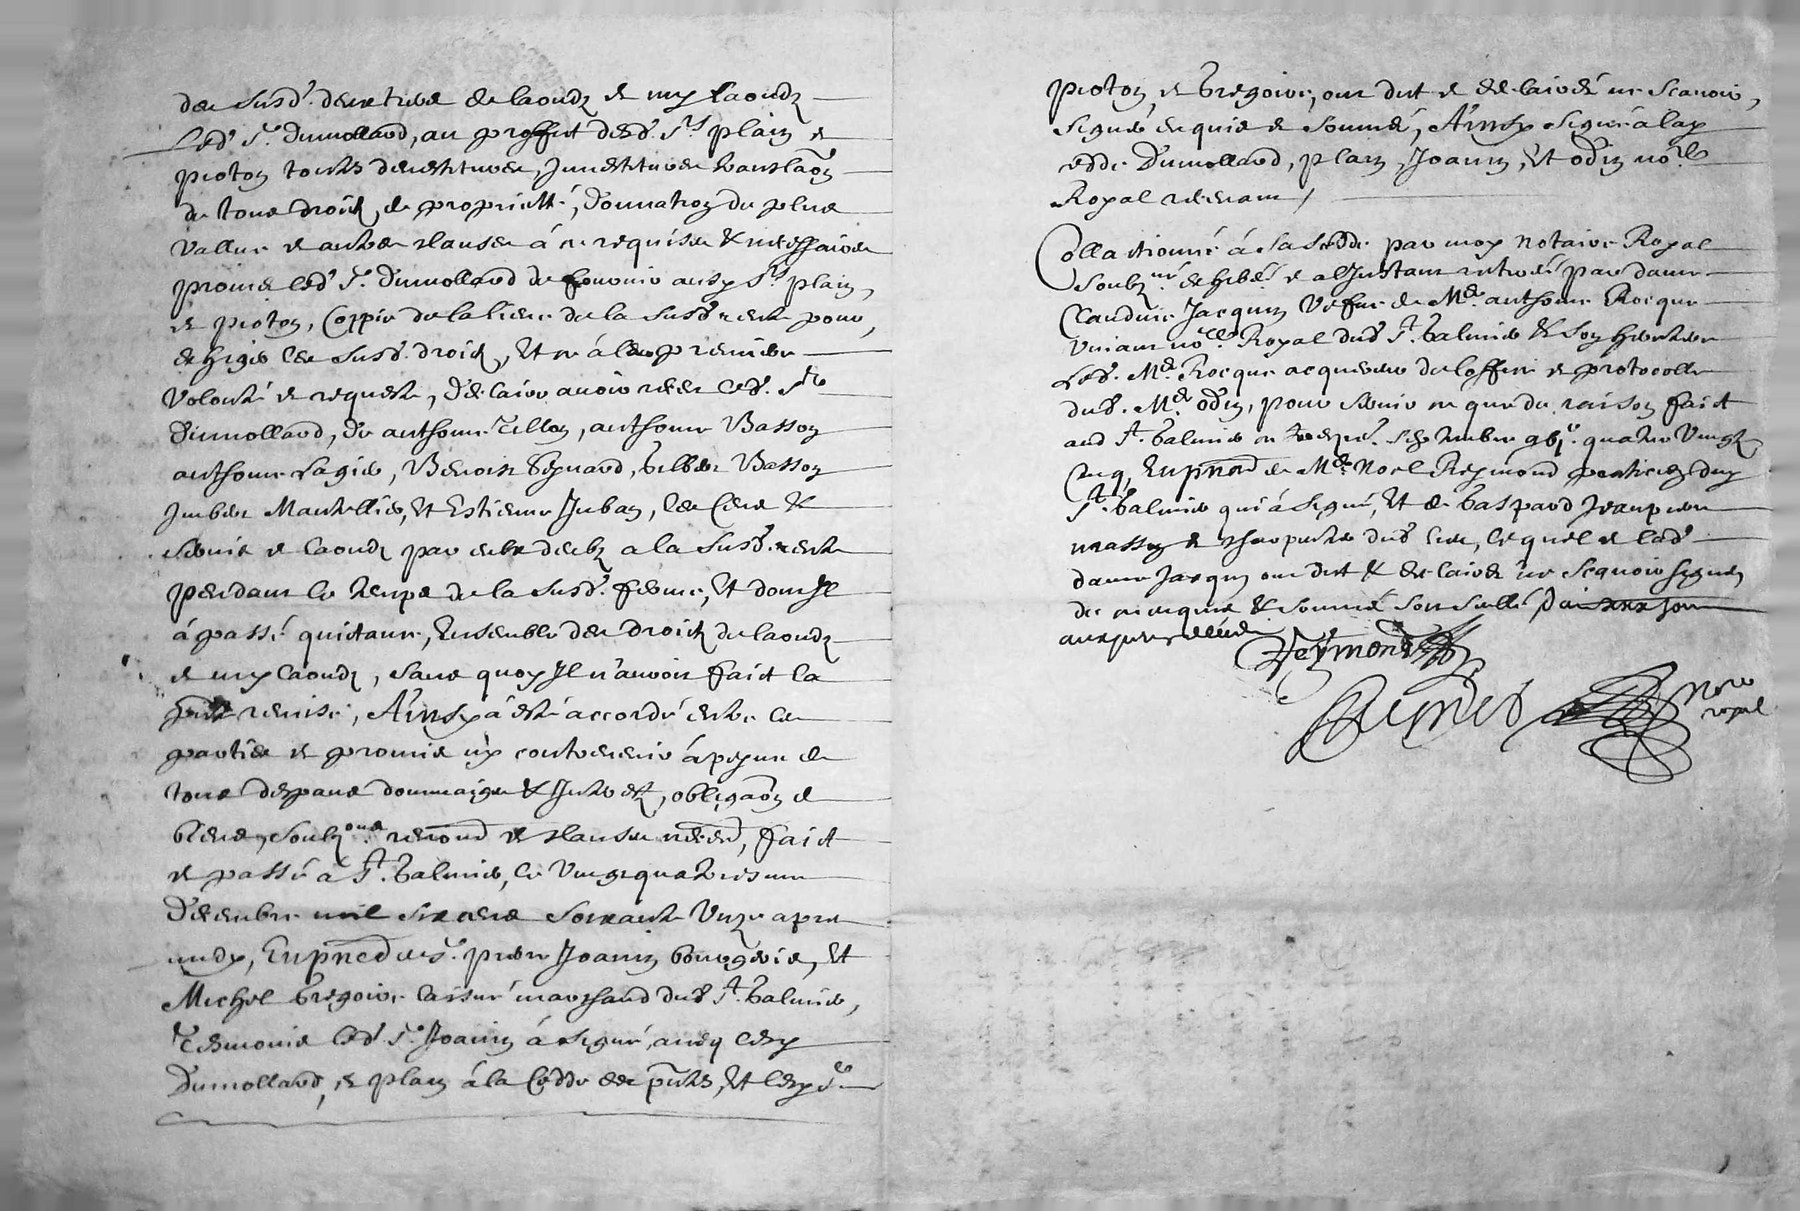 des susd. desvetues de laoudz et my laoudz
led. Sr. Dumolland, au proffit desd. Srs plain et
pioton touts devestitures, Investitures translaon
de tous droictz de propriette, donnation du plus
vallue et autres clauses à ce requises & necessaires
promis led. Sr. Dumolland de fournir ausy Srs plain,
et pioton, Coppie de la liève de la susd. rente pour,
exhiger les susd. droictz, Et ce à leur premiere
volonté et requeste, declare avoir receu led. Sr
Dumolland, de anthoine Tillon, anthoine Basson
anthoine Lagier, Benoist Bynard, Gilbert Basson
Imbert Mantellier, Et Estienne Juban, les Cens &
servis et laoudz par entre deubz a la susd. rente
pendant le temps de la susd. ferme, Et dont Il
à passé quictance, Ensemble des droictz de laoudz
et my laoudz, sans quoy Il n'auroit faict la
remise, Ainsy à esté accordé entre les
parties et promis n'y contrevenir à peyne de
tous despans dommaiges & Interestz, obligaon de
biens, soubzons renond et clauses necess, faict
et passé à St. Galmier, le vingt quatriesme
Decembre mil six cens soixante unze apres
midy, En pnce de Sr. pierre Joanin bourgeois, Et
Michel Gregoire laisné marchand dud. St. Galmier,
Tesmoins led. Sr. Joanin à signé, avecq lesd
Dumolland, et plain à la Cedde des pntes, Et lesd Sr
pioton, et Gregoire, ont dict et declairé ne scavoir,
signer enquis et sommé, Ainsy signé à lad
cedde Dumolland, plain, Joanin, Et odin nore
Royal recevant /
Collationné à sa Cedde par moy notaire Royal
soubzné exhibée et a l'Instant retirée par dame
Claudine Jacquin vefve de Me. anthoine Rocque
vivant nore Royal dud. St. Galmier & son heritiere
led. Me. Rocque acquereur de loffice et protocolle
dud. Me. odin, pour servir ce que de raison faict
aud St. Galmier ce septembre quatre vingtz
cinq, En pnce de Me. Noel Reymond praticien dud
St. Galmier qui à signé, Et de Gaspard Jean pierre
masson et charpentier dud. lieu, lequel et lad.
dame Jacquin ont dict & declairé ne scavoir signer
de ce enquis & sommé
Reymond
nore
royal